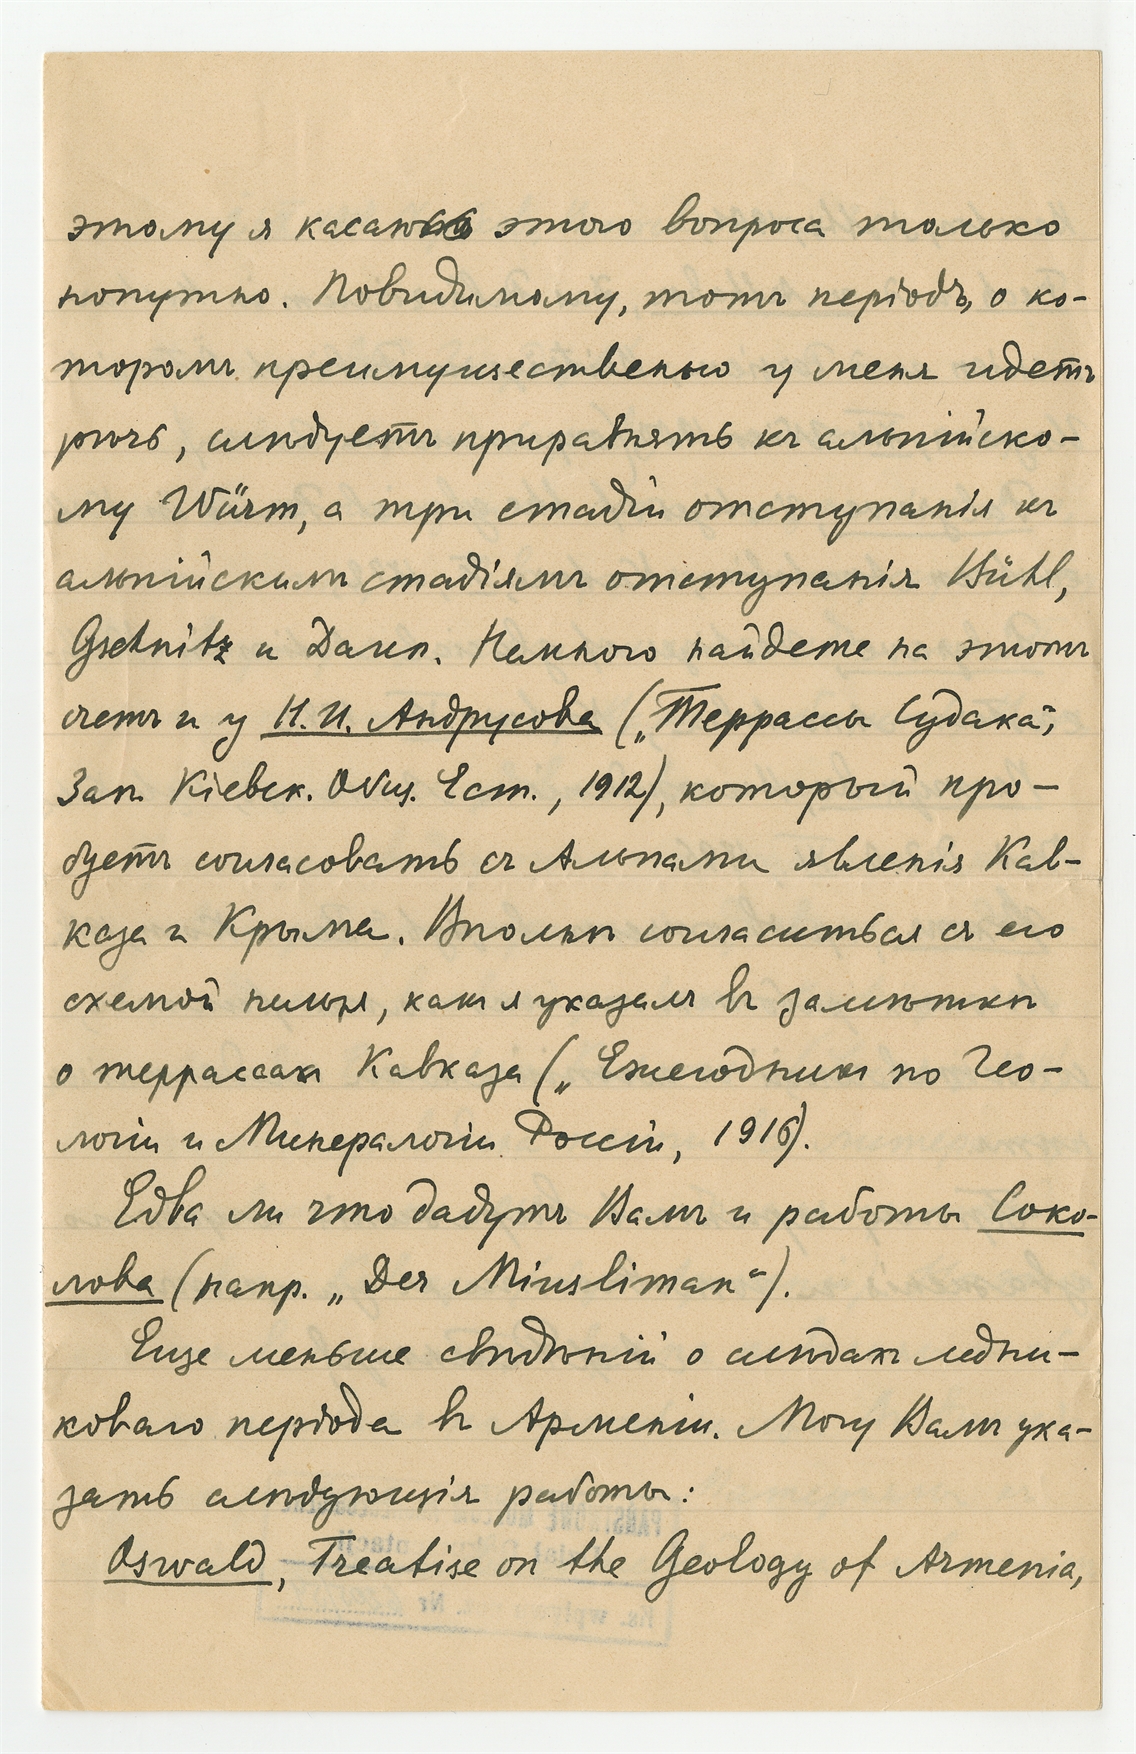 этому я касаюсь этого вопроса только
попутно. Повидимому, тотъ періодъ, о ко-
торомъ преимущественно у меня идетъ
рѣчь, слѣдуетъ приравнять къ альпійско-
му Würm, а три стадіи отступанія къ
альпійскимъ стадіямъ отступанія Bühl,
Gschnitz и Даун. Немного найдете на этотъ
счетъ и у Н. И. Андрусова („Террассы Судака“,
Зап. Кіевск. Общ. Ест., 1912), который про-
буетъ согласовать съ Альпами явленія Кав-
каза и Крыма. Вполнѣ согласиться съ его
схемой нельзя, какъ я указалъ въ замѣткѣ
о террассахъ Кавказа („Ежегодникъ по Гео-
логіи и Минералогіи Россіи, 1916).
Едва ли что дадутъ Вамъ и работы Соко-
лова (напр. „Der Miusliman“).
Еще меньше свѣдѣній о слѣдахъ ледни-
коваго періода въ Арменіи. Могу Вамъ ука-
зать слѣдующія работы:
Oswald, Treatise on the Geology of Armenia,